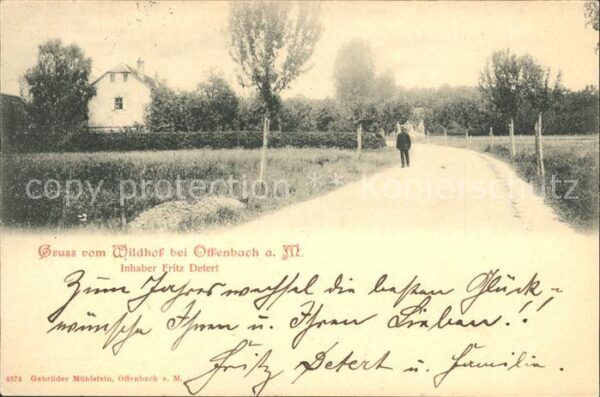 ** Copy protection ** Kopierschutz
Gruss vom Wildhof bei Offenbach a. M.
Inhaber Fritz Detert
Zum Jahreswechsel die besten Glück-
wünsche Ihnen u. Ihren Lieben!!
Fritz Detert u. Familie.
4374 Gebrüder Mühlstein, Offenbach a. M.